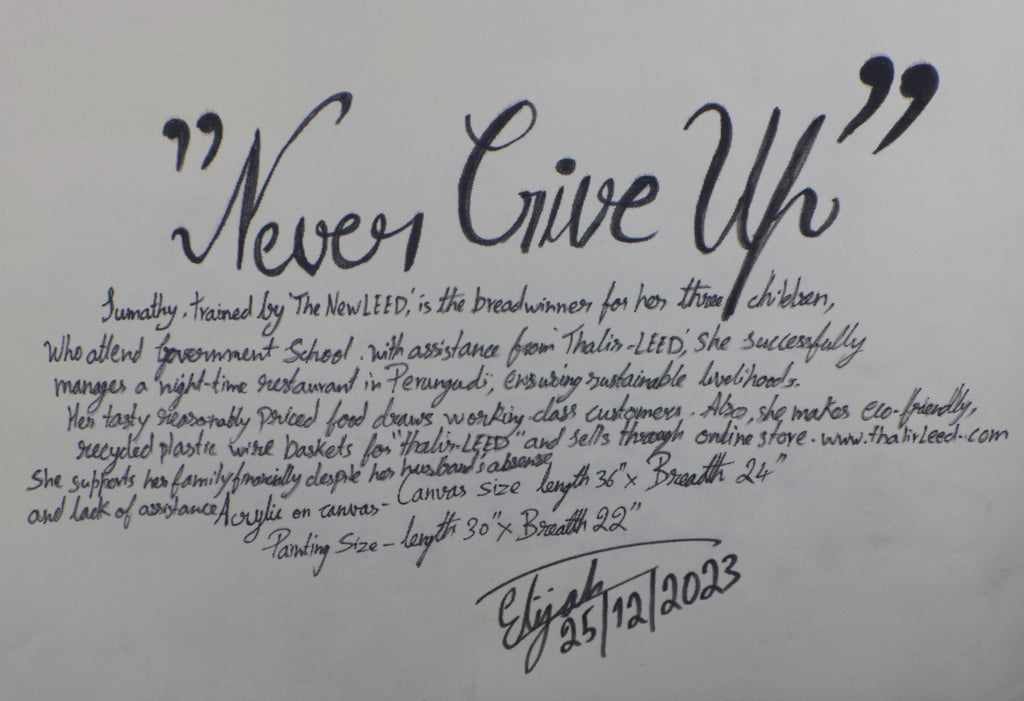 "Never Give Up"
Sumathy, trained by 'The New LEED,' is the breadwinner for her three children,
who attend Government School. with assistance from 'Thalir-LEED', she successfully
manages a night-time restaurant in Perungudi, ensuring sustainable livelihoods.
Her tasty reasonably priced food draws working-class customers. Also, she makes eco-friendly,
recycled plastic wire baskets for "thalir-LEED" and sells through online store. www.thalirleed.com
She supports her family financially despite her husband's absense
and lack of assistance
Acrylic on canvas- Canvas size length 36" x Breadth 24"
Painting Size - length 30" x Breadth 22"
Elijah
25/12/2023